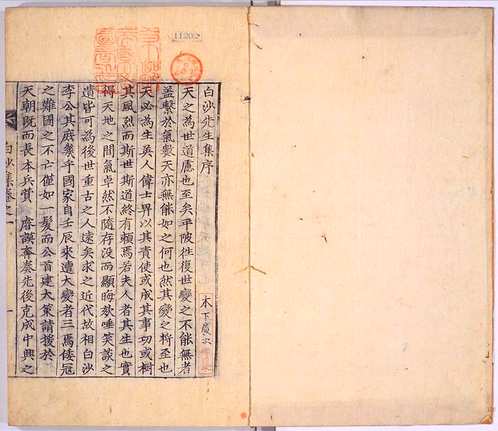 白沙先生集序
天之為世道慮也至矣平陂往復世變之不能無者
益繫於氣數天亦無能如之何也然其變之將至也
天必為生英人偉士畀以其責使或成其事功或樹
其風烈而斯世斯道終有賴焉若夫人者其生也實
得天地之間氣卓然不隨存沒而顯晦欬唾笑談之
遺皆可為後世重古之人遠矣求之近代故相白沙
李公其庶幾乎國家自壬辰來遭大變者三焉倭寇
之難國之不亡僅如一髮而公首建大策請援於
天朝既而長本兵賛 廟謨奔奏先後克成中興之
白沙集卷之一
木下廣次
11202